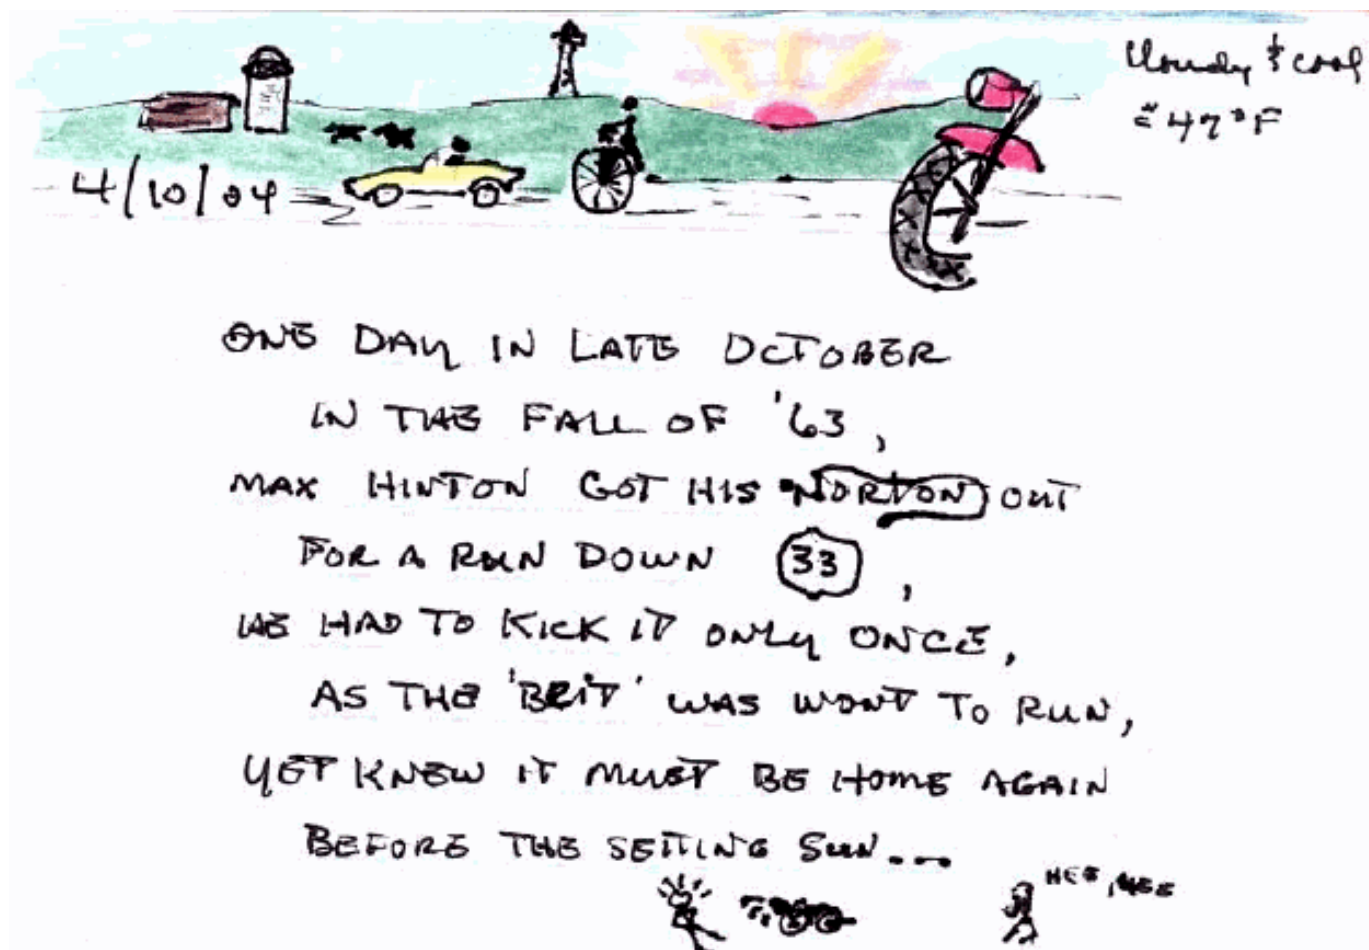 Cloudy & cool
≈ 47°F
4/10/04
ONE DAY IN LATE OCTOBER
IN THE FALL OF '63,
MAX HINTON GOT HIS NORTON OUT
FOR A RUN DOWN 33,
HE HAD TO KICK IT ONLY ONCE,
AS THE 'BRIT' WAS WONT TO RUN,
YET KNEW IT MUST BE HOME AGAIN
BEFORE THE SETTING SUN...
HEE, HEE